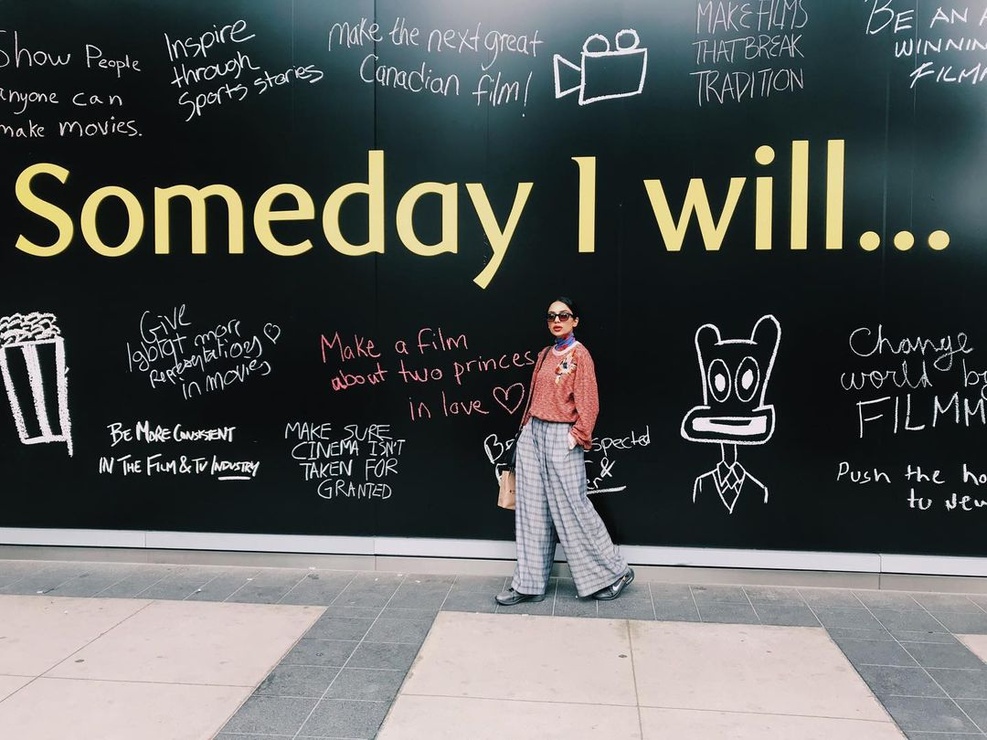 Show People
anyone can
make movies.
Inspire
through
Sports stories
make the next great
Canadian film!
MAKE FILMS
THAT BREAK
TRADITION
BE AN
WINNING
FILM
Someday I will...
Give
lgbtqt more
representations
in movies
Make a film
about two princess
in love
BE MORE CONSISTENT
IN THE FILM & TV INDUSTRY
MAKE SURE
CINEMA ISN'T
TAKEN FOR
GRANTED
spected
&
Change
world
FILMM
Push the
to New